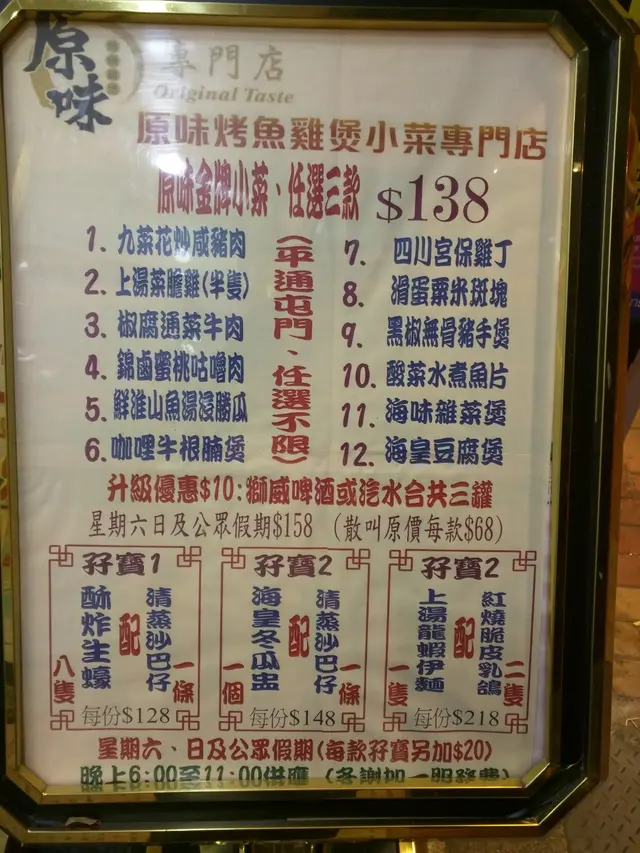 原味
專門店
Original Taste
原味烤魚雞煲小菜專門店
原味金牌小菜、任選三款 $138
1. 九菜花炒咸豬肉
2. 上湯菜膽雞(半隻)
3. 椒腐通菜牛肉
4. 錦鹵蜜桃咕嚕肉
5. 鮮淮山魚湯浸勝瓜
6. 咖哩牛根腩煲
(平通屯門、任選不限)
7. 四川宮保雞丁
8. 滑蛋粟米斑塊
9. 黑椒無骨豬手煲
10. 酸菜水煮魚片
11. 海味雜菜煲
12. 海皇豆腐煲
升級優惠$10:獅威啤酒或汽水合共三罐
星期六日及公眾假期$158 (散叫原價每款$68)
孖寶1
酥炸生蠔
八隻
配
清蒸沙巴仔
一條
每份$128
孖寶2
海皇冬瓜盅
一個
配
清蒸沙巴仔
一條
每份$148
孖寶2
上湯龍蝦伊麵
一隻
配
紅燒脆皮乳鴿
二隻
每份$218
星期六、日及公眾假期(每款孖寶另加$20)
晚上6:00至11:00供應 (多謝加一服務費)